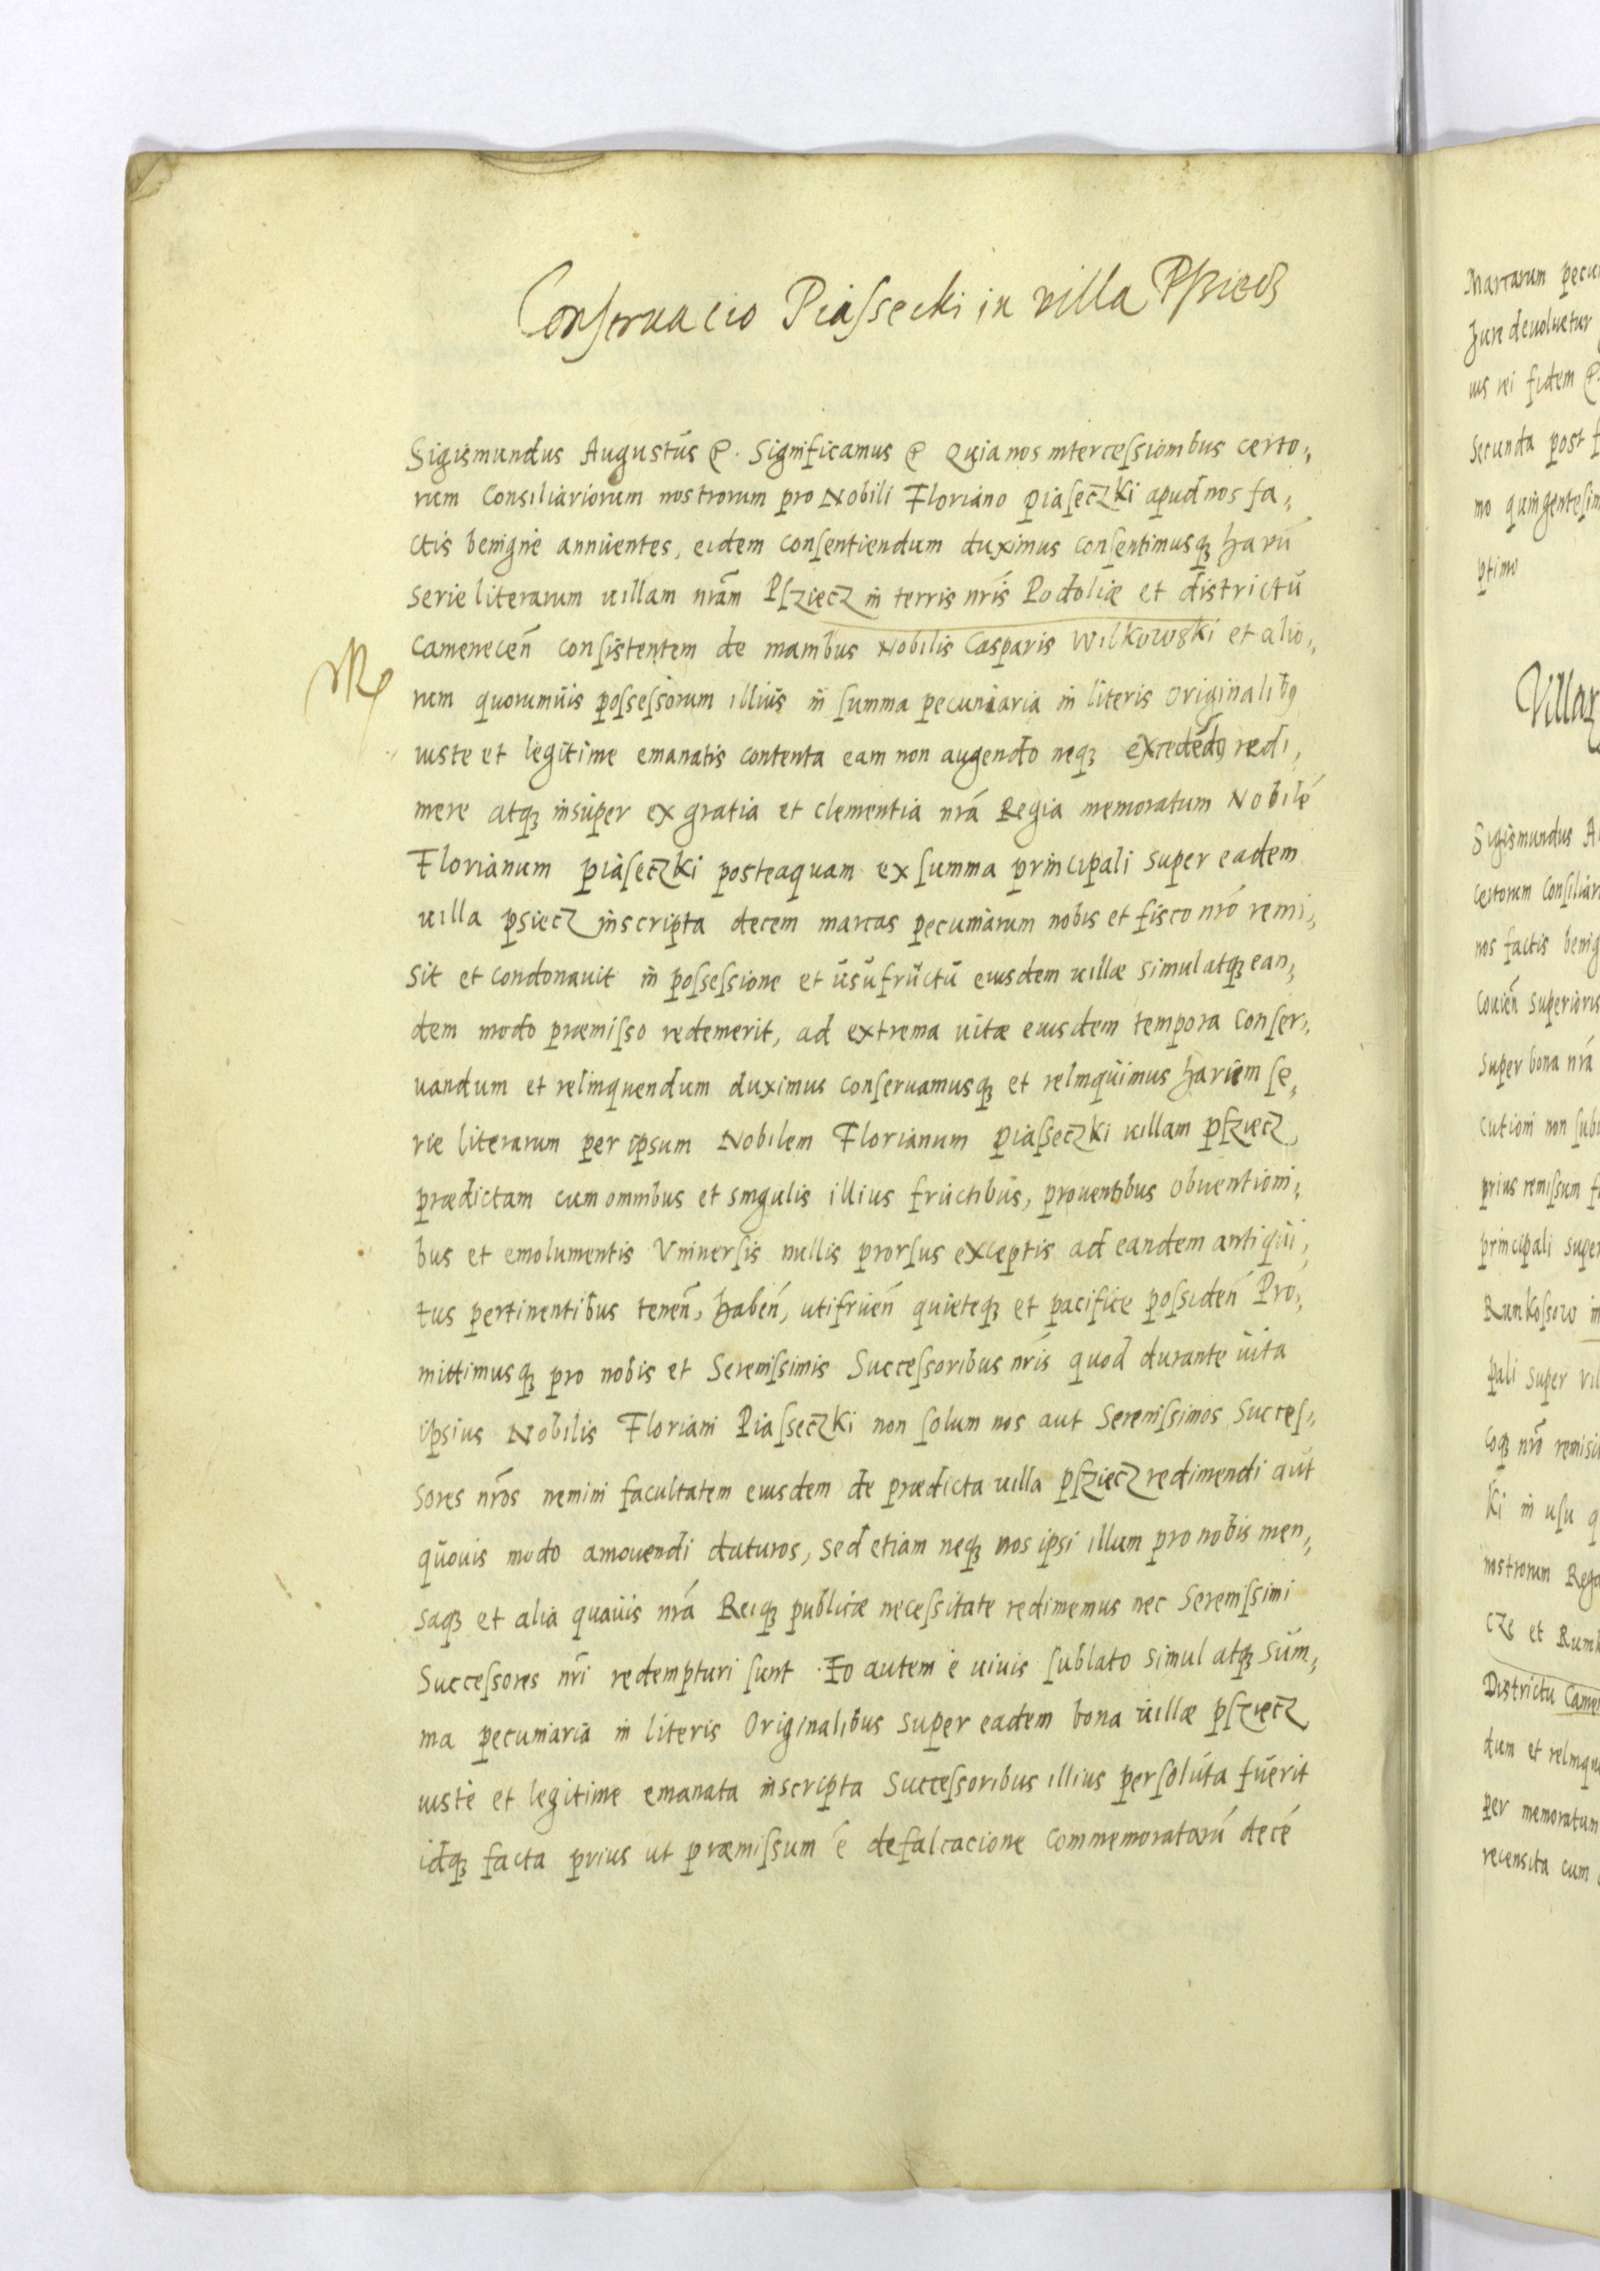 Conseruacio Piassecki in villa Pssiecz
Sigismundus Augustus &. Significamus & Quia nos intercessionibus certo,
rum Consiliariorum nostrorum pro Nobili Floriano Piaseczki apud nos fa,
ctis benigne annuentes, eidem consentiendum duximus consentimusq3 harū
serie literarum uillam nrām Psziecz in terris nrīs Podoliæ et districtu
Camenecen̄ consistentem de manibus Nobilis Casparis Wilkowski et alio,
rum quorumuis possessorum illius in summa pecuniaria in literis originalib9
iuste et legitime emanatis contenta eam non augendo neq3 excedēdo redi,
mere atq3 insuper ex gratia et clementia nrā Regia memoratum Nobilē
Florianum Piaseczki posteaquam ex summa principali super eadem
uilla psiecz inscripta decem marcas pecuniarum nobis et fisco nrō remi,
sit et condonauit in possessione et usufructu eiusdem uillæ simul atq3 ean,
dem modo præmisso redemerit, ad extrema uitæ eiusdem tempora conser,
uandum et relinquendum duximus conseruamusq3 et relinquimus harum se,
rie literarum per ipsum Nobilem Florianum Piasseczki uillam psziecz
prædictam cum omnibus et singulis illius fructibus, prouentibus obuentioni,
bus et emolumentis Vniuersis nullis prorsus exceptis ad eandem antiqui,
tus pertinentibus tenen̄, haben̄, utifruen̄ quieteq3 et pacifice possiden̄ Pro,
mittimusq3 pro nobis et Serenissimis Successoribus nrīs quod durante uita
ipsius Nobilis Floriani Piasseczki non solum nos aut Serenissimos Succes,
sores nrōs nemini facultatem eiusdem de prædicta uilla psziecz redimendi aut
quouis modo amouendi daturos, sed etiam neq3 nos ipsi illum pro nobis men,
saq3 et alia quauis nrā Reiq3 publicæ necessitate redimemus nec Serenissimi
Successores nrī redempturi sunt. Eo autem è uiuis sublato simul atq3 sum,
ma pecuniaria in literis Originalibus super eadem bona uillæ psziecz
iuste et legitime emanata inscripta Successoribus illius persoluta fuerit
idq3 facta prius ut præmissum ē defalcacione commemoratarū decē
Marcarum
Iure deuoluetur
ius rei fidem &.
Secunda post
ptimo
Sigismundus
nos factis
Super bona nrā
prius remissum
principali super
Runkossow in
ki in usu
Districtu
dum et
per memoratum
recensita cum